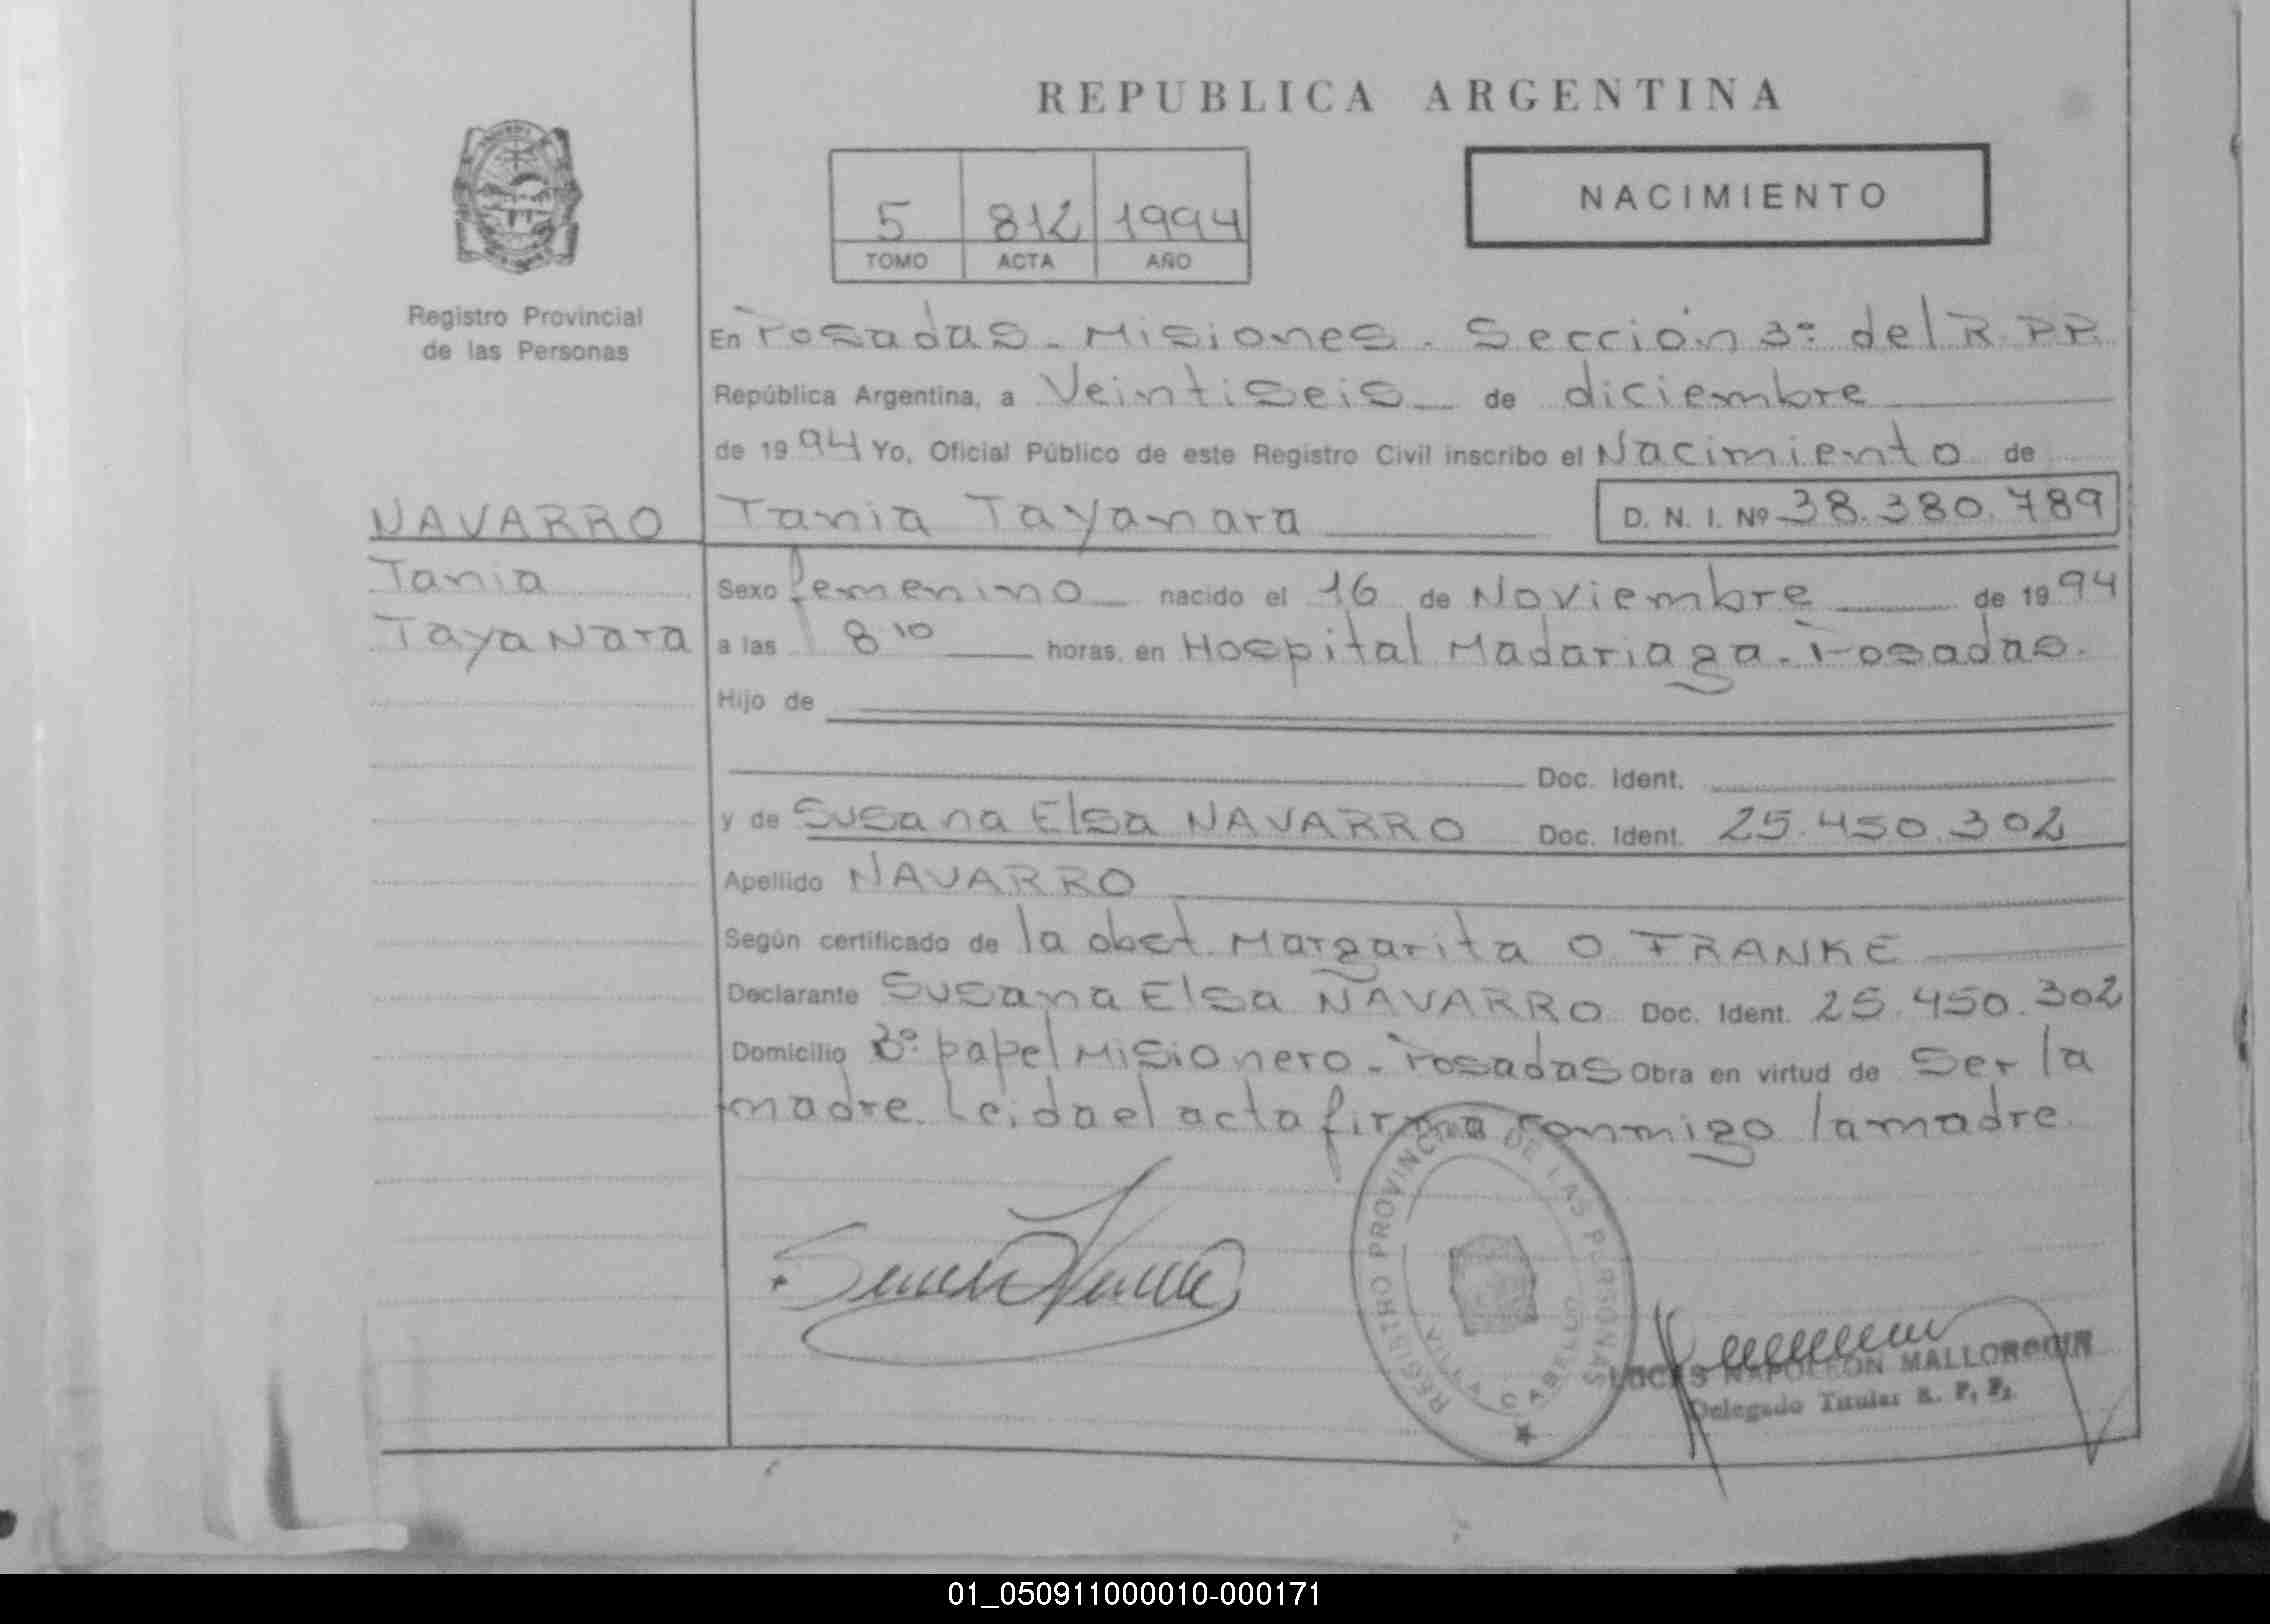 REPUBLICA ARGENTINA
NACIMIENTO
5 812 1994
TOMO ACTA AÑO
Registro Provincial
de las Personas
En Posadas - Misiones. Sección 3º del R.P.P.
República Argentina, a Veintiseis de diciembre
de 1994 Yo, Oficial Público de este Registro Civil inscribo el Nacimiento de
NAVARRO
Tania
TayaNara
Tania Tayanara D. N. I. Nº 38.380.789
Sexo femenino nacido el 16 de Noviembre de 1994
a las 8 10 horas, en Hospital Madariaga - Posadas.
Hijo de
Doc. Ident.
y de Susana Elsa NAVARRO Doc. Ident. 25.450.302
Apellido NAVARRO
Según certificado de la obst. Margarita O FRANKE
Declarante Susana Elsa NAVARRO Doc. Ident. 25.450.302
Domicilio Bº papel Misionero - Posadas Obra en virtud de Ser la
madre. Leida el acta firma conmigo la madre.
REGISTRO PROVINCIAL DE LAS PERSONAS
VILLA CABELLO
LUCAS NAPOLEON MALLORQUIN
Delegado Titular R. P. P.
01_050911000010-000171